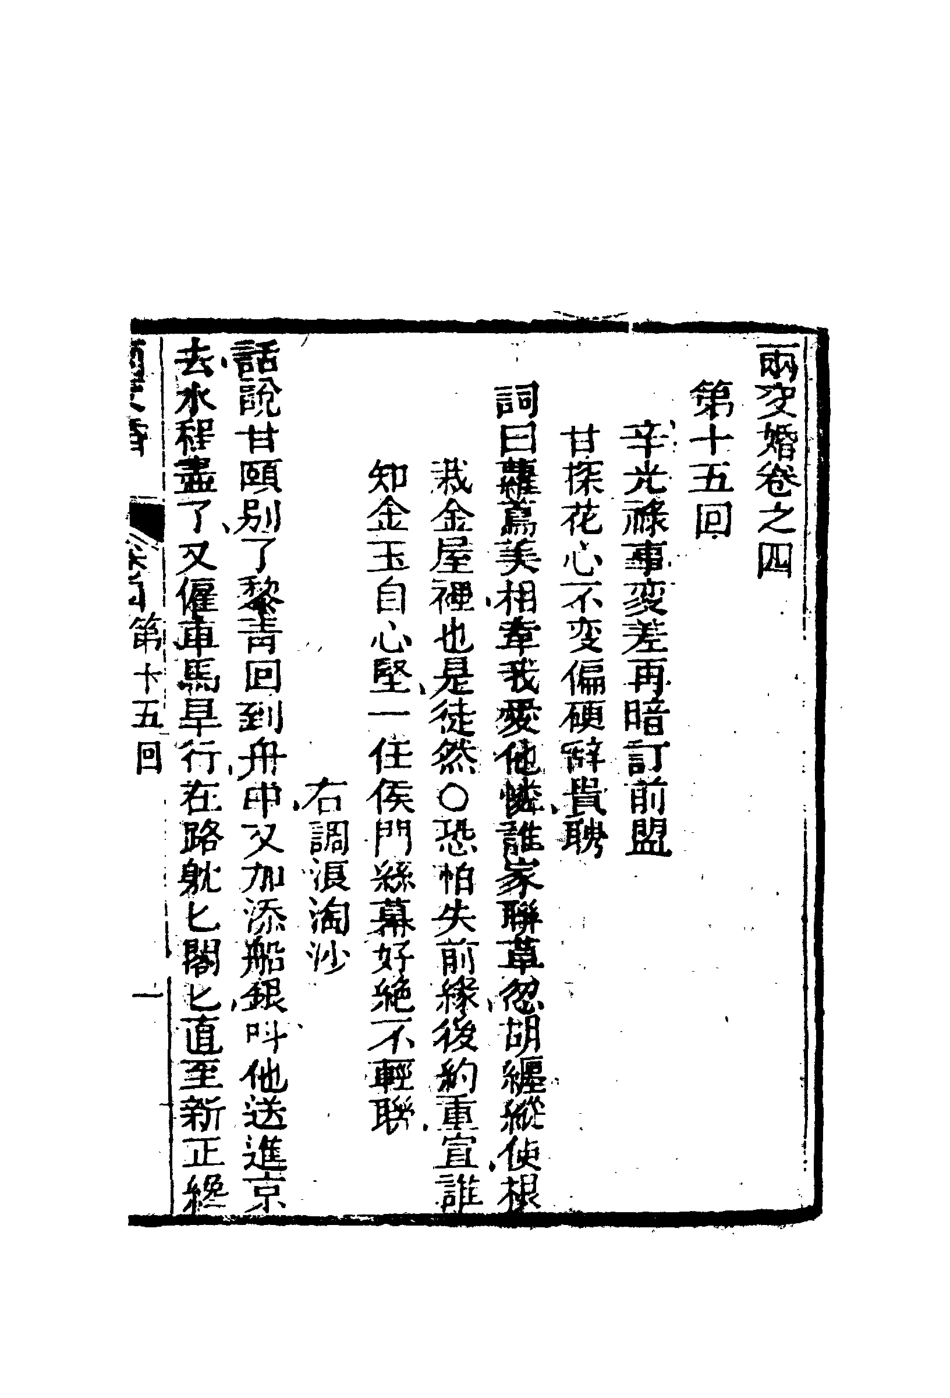 兩交婚卷之四
第十五回
辛光祿事変差再暗訂前盟
甘探花心不变偏碩辭貴聘
詞曰蘿蔦美相牽我愛他憐誰家聯草忽胡纏縱使根
栽金屋裡也是徒然〇恐怕失前緣後約重宣誰
知金玉自心堅一任侯門絲幕好絶不輕聯
右調浪淘沙
話說甘頤別了黎青回到舟中又加添船銀叫他送進京
去水程盡了又僱車馬旱行在路躭匕閣匕直至新正纔
兩交婚
第十五回
一